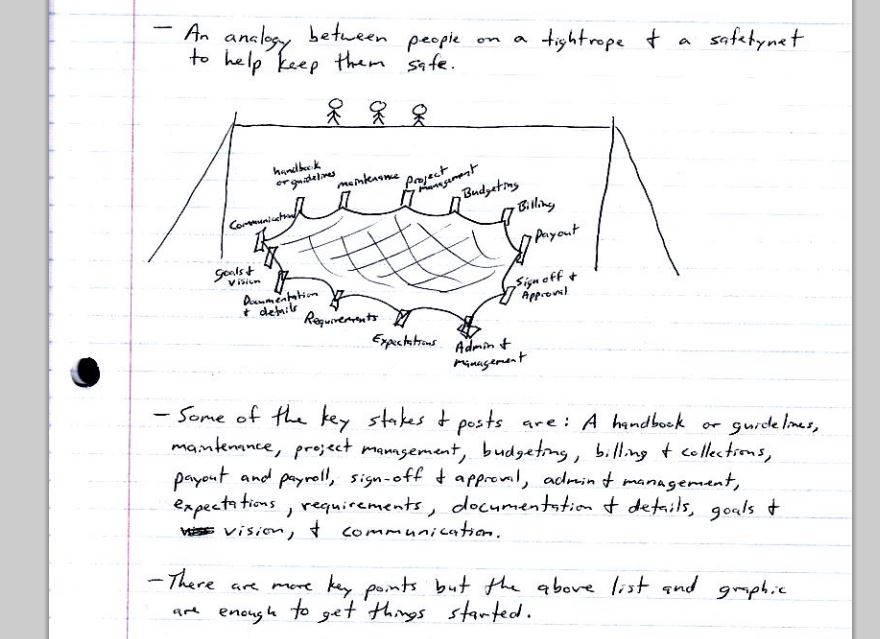 - An analogy between people on a tightrope & a safetynet
to help keep them safe.
handbook
or guidelines
maintenance
project
management
Budgeting
Billing
Communication
Payout
Goals &
vision
Sign off &
Approval
Documentation
& details
Requirements
Expectations
Admin &
management
- Some of the key stakes & posts are: A handbook or guidelines,
maintenance, project management, budgeting, billing & collections,
payout and payroll, sign-off & approval, admin & management,
expectations, requirements, documentation & details, goals &
vision, & communication.
- There are more key points but the above list and graphic
are enough to get things started.